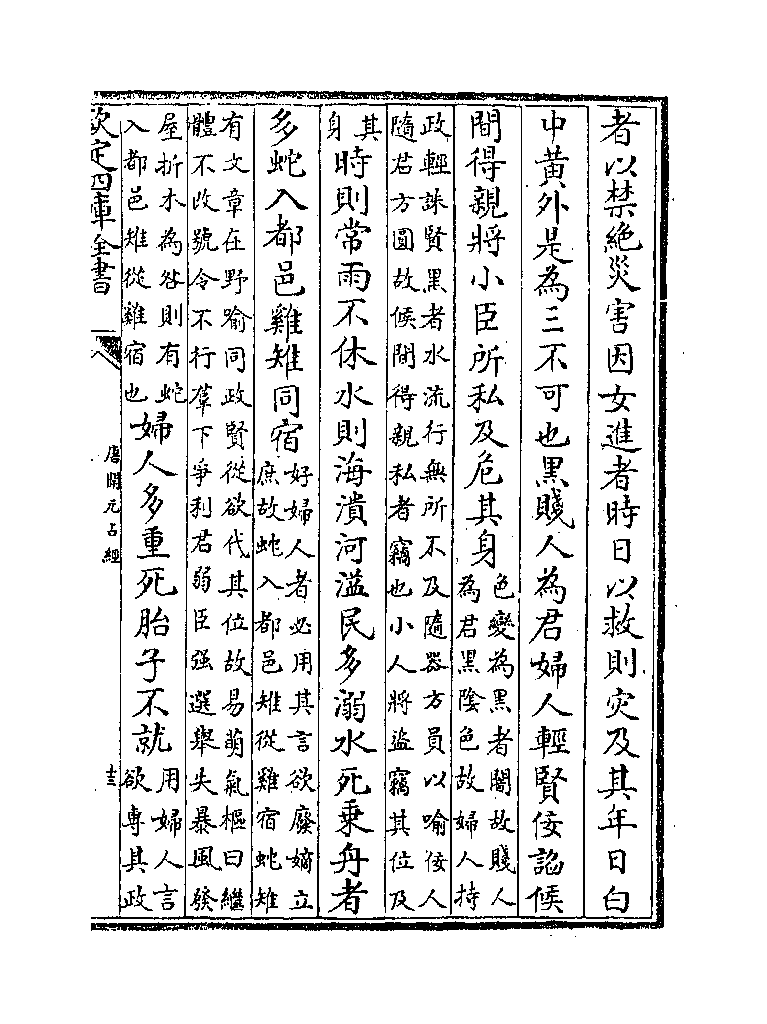 者以禁絶災害因女進者時日以救則灾及其年日白
中黄外是為三不可也黒賤人為君婦人輕賢佞謟候
間得親將小臣所私及危其身
色變為黒者闇故賤人
為君黒陰色故婦人持
政輕誅賢黒者水流行無所不及隨器方員以喻佞人
隨君方圓故候間得親私者竊也小人將盗竊其位及
其
身
時則常雨不休水則海潰河溢民多溺水死乗舟者
多蛇入都邑雞雉同宿
好婦人者必用其言欲廢嫡立
庶故蛇入都邑雉從雞宿蛇雉
有文章在野喻同政賢從欲代其位故易萌氣樞曰繼
體不改號令不行羣下爭利君弱臣强選舉失暴風發
屋折木為咎則有蛇
入都邑雉從雞宿也
婦人多重死胎子不就
用婦人言
欲專其政
欽定四庫全書
唐開元占經
十三